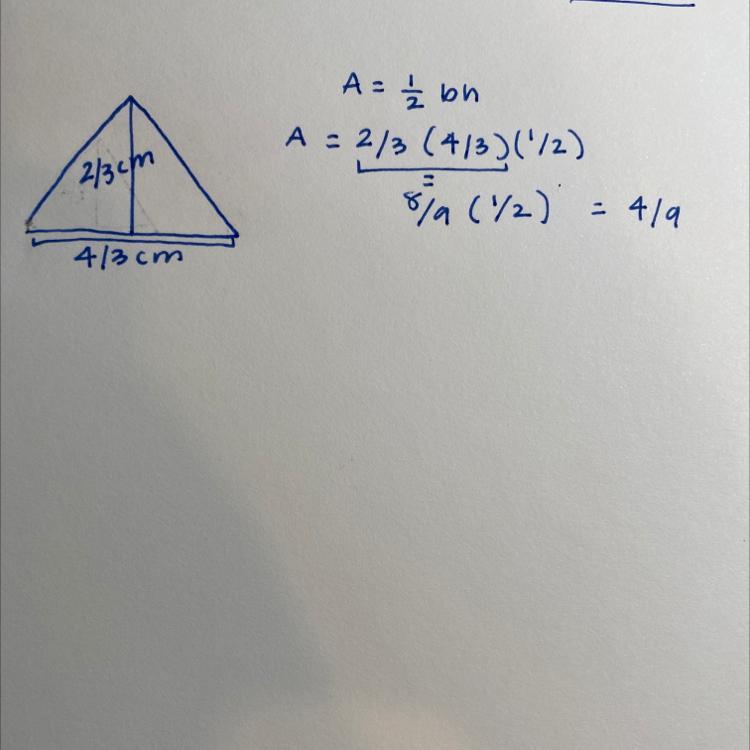 A = 1/2 bh
A = 2/3 (4/3)(1/2)
=
8/9 (1/2) = 4/9
2/3 cm
4/3 cm